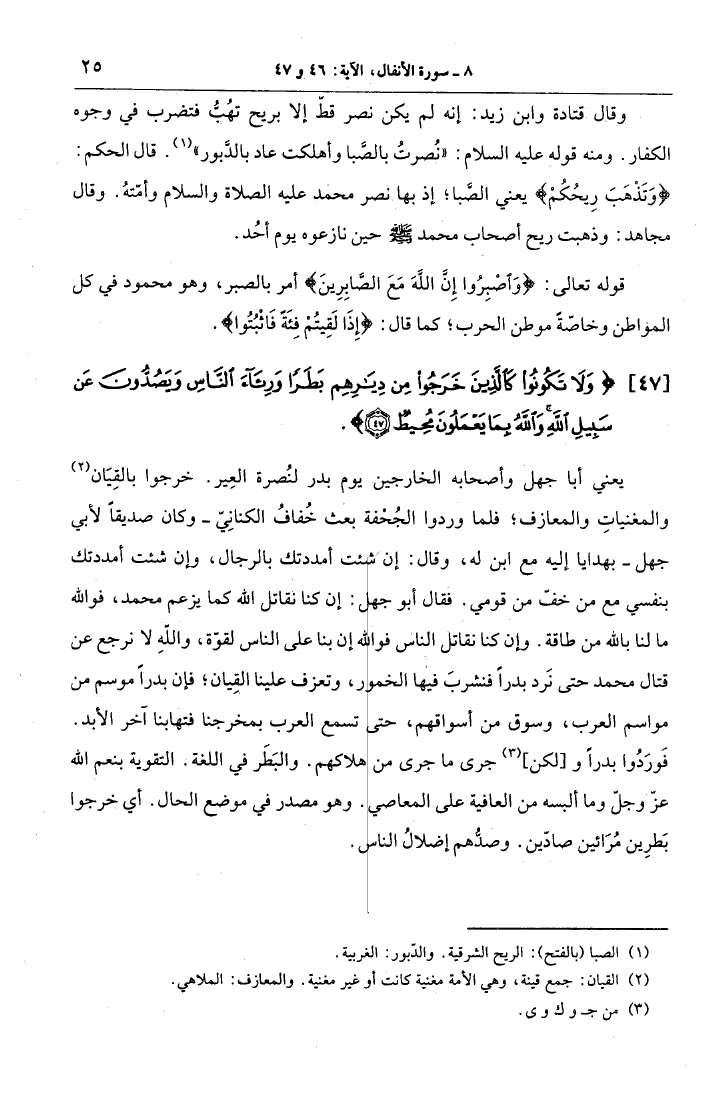 ٨ ـ سورة الأنفال، الآية: ٤٦ و ٤٧
٢٥
وقال قتادة وابن زيد: إنه لم يكن نصر قطّ إلا بريح تهُبُّ فتضرب في وجوه
الكفار. ومنه قوله عليه السلام: «نُصرتُ بالصَّبا وأهلكت عاد بالدَّبور»(١). قال الحكم:
﴿وَتَذْهَبَ رِيحُكُمْ﴾ يعني الصَّبا؛ إذ بها نصر محمد عليه الصلاة والسلام وأمّتهُ. وقال
مجاهد: وذهبت ريح أصحاب محمد ﷺ حين نازعوه يوم أُحُد.
قوله تعالى: ﴿وَٱصْبِرُوا إِنَّ اللَّهَ مَعَ الصَّابِرِينَ﴾ أمر بالصبر، وهو محمود في كل
المواطن وخاصّةً موطن الحرب؛ كما قال: ﴿إِذَا لَقِيتُمْ فِئَةً فَاثْبُتُوا﴾.
[٤٧] ﴿وَلَا تَكُونُوا۟ كَٱلَّذِينَ خَرَجُوا۟ مِن دِيَـٰرِهِم بَطَرًا وَرِئَآءَ ٱلنَّاسِ وَيَصُدُّونَ عَن
سَبِيلِ ٱللَّهِۚ وَٱللَّهُ بِمَا يَعْمَلُونَ مُحِيطٌ ٤٧﴾.
يعني أبا جهل وأصحابه الخارجين يوم بدر لنُصرة العِير. خرجوا بالقِيَان(٢)
والمغنياتِ والمعازف؛ فلما وردوا الجُحْفة بعث خُفافُ الكنانيّ ـ وكان صديقاً لأبي
جهل ـ بهدايا إليه مع ابن له، وقال: إن شئت أمددتك بالرجال، وإن شئت أمددتك
بنفسي مع من خفّ من قومي. فقال أبو جهل: إن كنا نقاتل الله كما يزعم محمد، فوالله
ما لنا بالله من طاقة. وإن كنا نقاتل الناس فوالله إن بنا على الناس لقوّة، واللَّهِ لا نرجع عن
قتال محمد حتى نَرد بدراً فنشربَ فيها الخمور، وتعزف علينا القِيان؛ فإن بدراً موسم من
مواسم العرب، وسوق من أسواقهم، حتى تسمع العرب بمخرجنا فتهابنا آخر الأبد.
فَورَدُوا بدراً و [لكن](٣) جرى ما جرى من هلاكهم. والبَطَر في اللغة. التقوية بنعم الله
عزّ وجلّ وما ألبسه من العافية على المعاصي. وهو مصدر في موضع الحال. أي خرجوا
بَطرِين مُرَائين صادّين. وصدُّهم إضلالُ الناس.
(١) الصبا (بالفتح): الريح الشرقية. والدّبور: الغربية.
(٢) القيان: جمع قينة، وهي الأمة مغنية كانت أو غير مغنية. والمعازف: الملاهي.
(٣) من جـ و ك و ى.